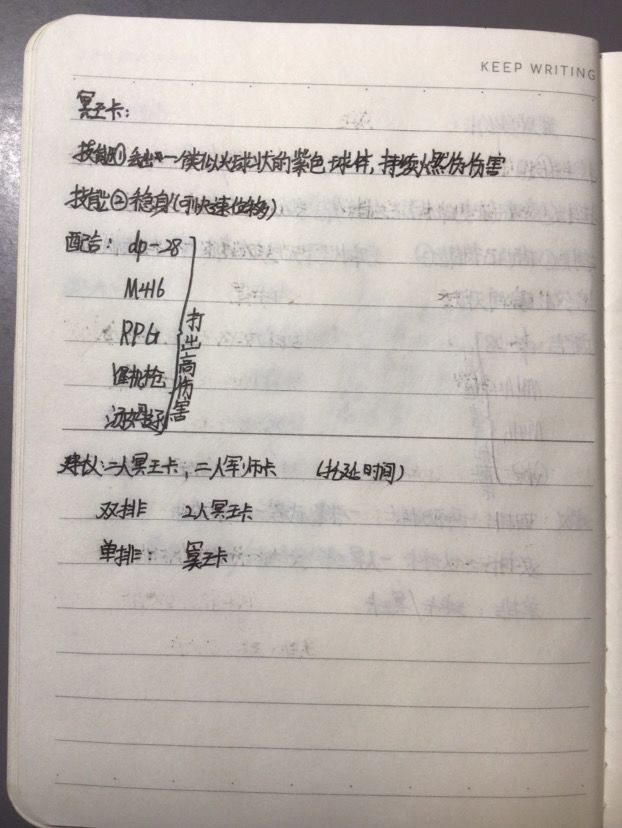 KEEP WRITING
冥王卡:
技能① 丢出一个类似火球状的紫色球体,持续燃伤伤害
技能②隐身(可快速位移)
配合: dp-28
M416
RPG
机枪
汤姆逊
打出高伤害
建议:二人冥王卡,二人军师卡 (拖延时间)
双排 2人冥王卡
单排: 冥王卡